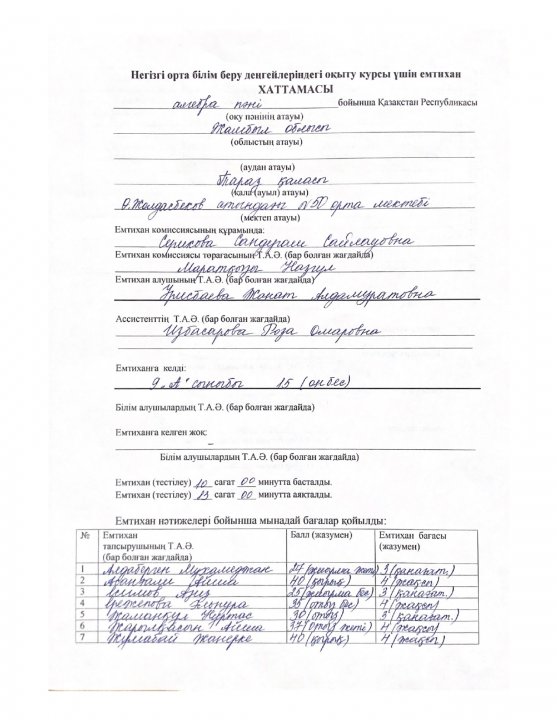 Негізгі орта білім беру деңгейлеріндегі оқыту курсы үшін емтихан
ХАТТАМАСЫ
алгебра пәні бойынша Қазақстан Республикасы
(оқу пәнінің атауы)
Жамбыл облысы
(облыстың атауы)
(аудан атауы)
Тараз қаласы
(қала (ауыл) атауы)
Ө.Жолдасбеков атындағы №50 орта мектебі
(мектеп атауы)
Емтихан комиссиясының құрамында:
Серикова Сандугаш Сайлауовна
Емтихан комиссиясы төрағасының Т.А.Ә. (бар болған жағдайда)
Маратқызы Назгул
Емтихан алушының Т.А.Ә. (бар болған жағдайда)
Үрисбаева Жанат Алдамуратовна
Ассистенттің Т.А.Ә. (бар болған жағдайда)
Избасарова Роза Омаровна
Емтиханға келді:
9 "А" сыныбы 15 (он бес)
Білім алушылардың Т.А.Ә. (бар болған жағдайда)
Емтиханға келген жоқ:
Білім алушылардың Т.А.Ә. (бар болған жағдайда)
Емтихан (тестілеу) 10 сағат 00 минутта басталды.
Емтихан (тестілеу) 13 сағат 00 минутта аяқталды.
Емтихан нәтижелері бойынша мынадай бағалар қойылды:
№ Емтихан тапсырушының Т.А.Ә. (бар болған жағдайда) Балл (жазумен) Емтихан бағасы (жазумен)
1 Алдаберген 27 (жиырма жеті) 3 (қанағат.)
2 Айша 40 (қырық) 4 (жақсы)
3 25 (жиырма бес) 3 (қанағат.)
4 Динура 35 (отыз бес) 4 (жақсы)
5 Жаманқул Нұртас 30 (отыз) 3 (қанағат.)
6 Жарылқасын Айша 37 (отыз жеті) 4 (жақсы)
7 Жұмабай Жанерке 40 (қырық) 4 (жақсы)